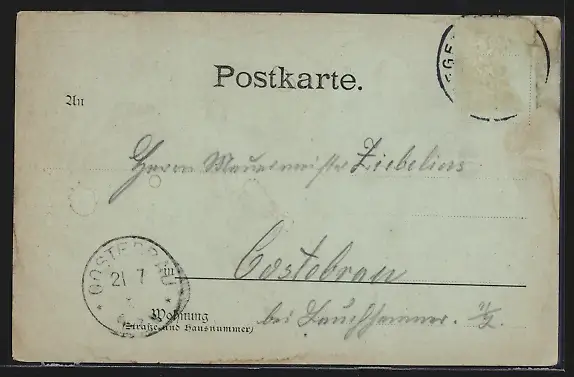 Postkarte.
An
Herrn Mauermeister Ziebelius
in Costebrau
bei Lauchhammer.
Wohnung
(Straße und Hausnummer)
COSTEBRAU
21 7